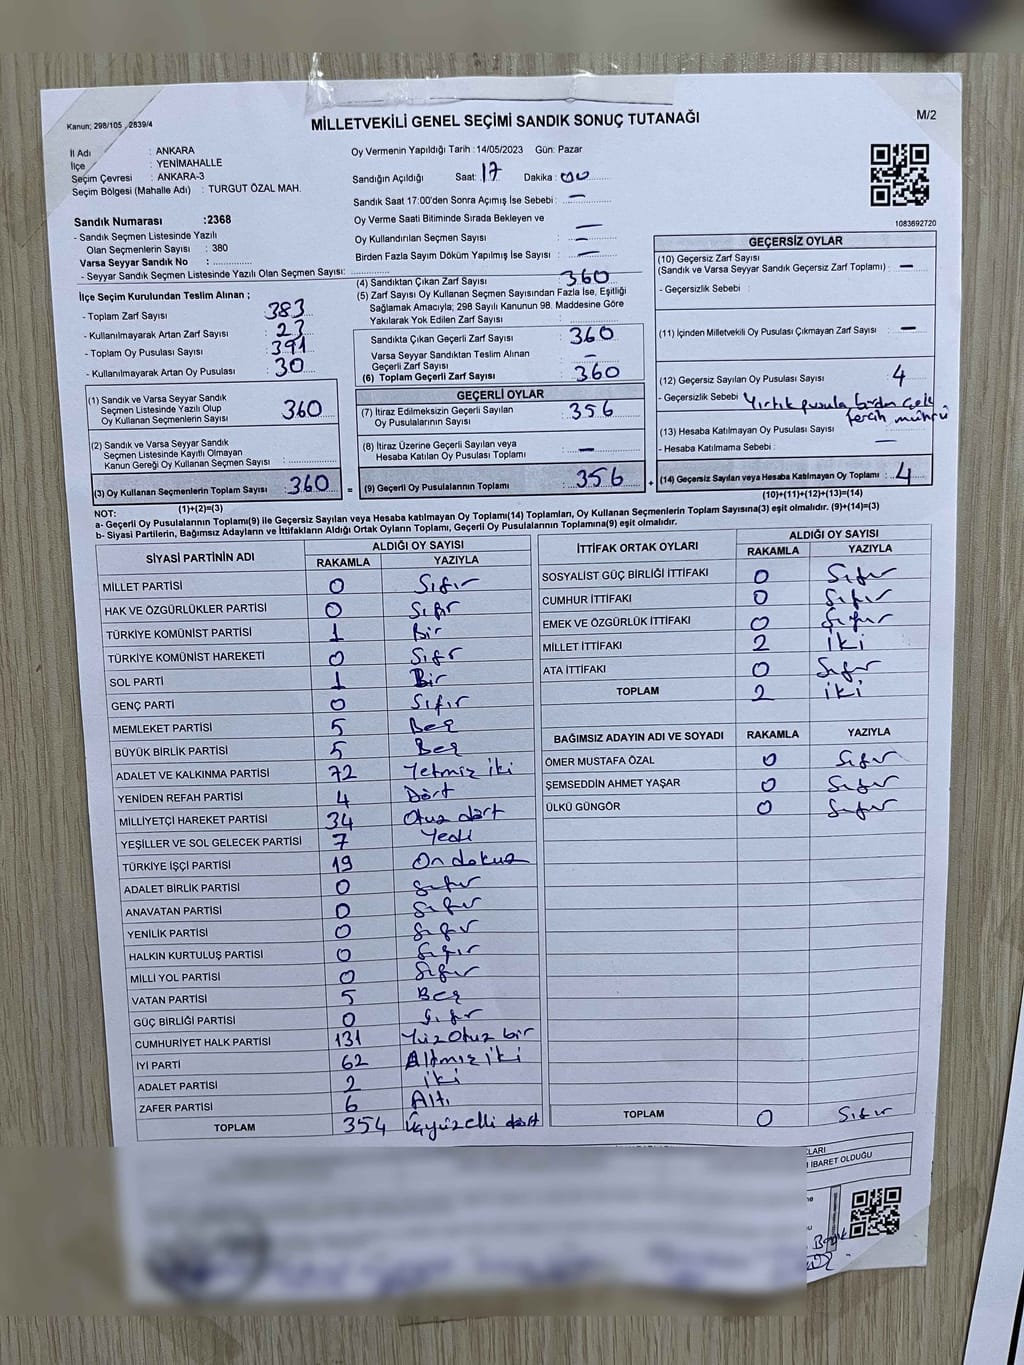 Kanun; 298/105 , 2839/4
MİLLETVEKİLİ GENEL SEÇİMİ SANDIK SONUÇ TUTANAĞI
M/2
İl Adı : ANKARA
İlçe : YENİMAHALLE
Seçim Çevresi : ANKARA-3
Seçim Bölgesi (Mahalle Adı) : TURGUT ÖZAL MAH.
Sandık Numarası :2368
- Sandık Seçmen Listesinde Yazılı
Olan Seçmenlerin Sayısı : 380
Varsa Seyyar Sandık No :
- Seyyar Sandık Seçmen Listesinde Yazılı Olan Seçmen Sayısı:
İlçe Seçim Kurulundan Teslim Alınan ;
- Toplam Zarf Sayısı : 383
- Kullanılmayarak Artan Zarf Sayısı : 23
- Toplam Oy Pusulası Sayısı : 391
- Kullanılmayarak Artan Oy Pusulası : 30
(1) Sandık ve Varsa Seyyar Sandık
Seçmen Listesinde Yazılı Olup
Oy Kullanan Seçmenlerin Sayısı : 360
(2) Sandık ve Varsa Seyyar Sandık
Seçmen Listesinde Kayıtlı Olmayan
Kanun Gereği Oy Kullanan Seçmen Sayısı :
(3) Oy Kullanan Seçmenlerin Toplam Sayısı : 360
(1)+(2)=(3)
Oy Vermenin Yapıldığı Tarih : 14/05/2023 Gün: Pazar
Sandığın Açıldığı Saat: 17 Dakika : 00
Sandık Saat 17:00'den Sonra Açımış İse Sebebi : —
Oy Verme Saati Bitiminde Sırada Bekleyen ve —
Oy Kullandırılan Seçmen Sayısı : —
Birden Fazla Sayım Döküm Yapılmış İse Sayısı : —
(4) Sandıktan Çıkan Zarf Sayısı : 360
(5) Zarf Sayısı Oy Kullanan Seçmen Sayısından Fazla İse, Eşitliği
Sağlamak Amacıyla; 298 Sayılı Kanunun 98. Maddesine Göre
Yakılarak Yok Edilen Zarf Sayısı :
Sandıkta Çıkan Geçerli Zarf Sayısı : 360
Varsa Seyyar Sandıktan Teslim Alınan
Geçerli Zarf Sayısı : —
(6) Toplam Geçerli Zarf Sayısı : 360
GEÇERLİ OYLAR
(7) İtiraz Edilmeksizin Geçerli Sayılan
Oy Pusulalarının Sayısı : 356
(8) İtiraz Üzerine Geçerli Sayılan veya
Hesaba Katılan Oy Pusulası Toplamı : —
= (9) Geçerli Oy Pusulalarının Toplamı : 356 +
1083692720
GEÇERSİZ OYLAR
(10) Geçersiz Zarf Sayısı
(Sandık ve Varsa Seyyar Sandık Geçersiz Zarf Toplamı) : —
- Geçersizlik Sebebi :
(11) İçinden Milletvekili Oy Pusulası Çıkmayan Zarf Sayısı : —
(12) Geçersiz Sayılan Oy Pusulası Sayısı : 4
- Geçersizlik Sebebi : Yırtık pusula birden çok
tercih mührü
(13) Hesaba Katılmayan Oy Pusulası Sayısı :
- Hesaba Katılmama Sebebi : —
(14) Geçersiz Sayılan veya Hesaba Katılmayan Oy Toplamı : 4
(10)+(11)+(12)+(13)=(14)
NOT:
a- Geçerli Oy Pusulalarının Toplamı(9) ile Geçersiz Sayılan veya Hesaba katılmayan Oy Toplamı(14) Toplamları, Oy Kullanan Seçmenlerin Toplam Sayısına(3) eşit olmalıdır. (9)+(14)=(3)
b- Siyasi Partilerin, Bağımsız Adayların ve İttifakların Aldığı Ortak Oyların Toplamı, Geçerli Oy Pusulalarının Toplamına(9) eşit olmalıdır.
SİYASİ PARTİNİN ADI ALDIĞI OY SAYISI
RAKAMLA YAZIYLA
MİLLET PARTİSİ 0 Sıfır
HAK VE ÖZGÜRLÜKLER PARTİSİ 0 Sıfır
TÜRKİYE KOMÜNİST PARTİSİ 1 Bir
TÜRKİYE KOMÜNİST HAREKETİ 0 Sıfr
SOL PARTİ 1 Bir
GENÇ PARTİ 0 Sıfır
MEMLEKET PARTİSİ 5 Beş
BÜYÜK BİRLİK PARTİSİ 5 Beş
ADALET VE KALKINMA PARTİSİ 72 Yetmiş iki
YENİDEN REFAH PARTİSİ 4 Dört
MİLLİYETÇİ HAREKET PARTİSİ 34 Otuz dört
YEŞİLLER VE SOL GELECEK PARTİSİ 7 Yedi
TÜRKİYE İŞÇİ PARTİSİ 19 On dokuz
ADALET BİRLİK PARTİSİ 0 Sıfır
ANAVATAN PARTİSİ 0 Sıfır
YENİLİK PARTİSİ 0 Sıfır
HALKIN KURTULUŞ PARTİSİ 0 Sıfır
MİLLİ YOL PARTİSİ 0 Sıfır
VATAN PARTİSİ 5 Beş
GÜÇ BİRLİĞİ PARTİSİ 0 Sıfır
CUMHURİYET HALK PARTİSİ 131 Yüz Otuz bir
İYİ PARTİ 62 Altmış iki
ADALET PARTİSİ 2 iki
ZAFER PARTİSİ 6 Altı
TOPLAM 354 Üçyüzelli dört
İTTİFAK ORTAK OYLARI ALDIĞI OY SAYISI
RAKAMLA YAZIYLA
SOSYALİST GÜÇ BİRLİĞİ İTTİFAKI 0 Sıfır
CUMHUR İTTİFAKI 0 Sıfır
EMEK VE ÖZGÜRLÜK İTTİFAKI 0 Sıfır
MİLLET İTTİFAKI 2 iki
ATA İTTİFAKI 0 Sıfır
TOPLAM 2 iki
BAĞIMSIZ ADAYIN ADI VE SOYADI RAKAMLA YAZIYLA
ÖMER MUSTAFA ÖZAL 0 Sıfır
ŞEMSEDDİN AHMET YAŞAR 0 Sıfır
ÜLKÜ GÜNGÖR 0 Sıfır
TOPLAM 0 Sıfır
İBARET OLDUĞU